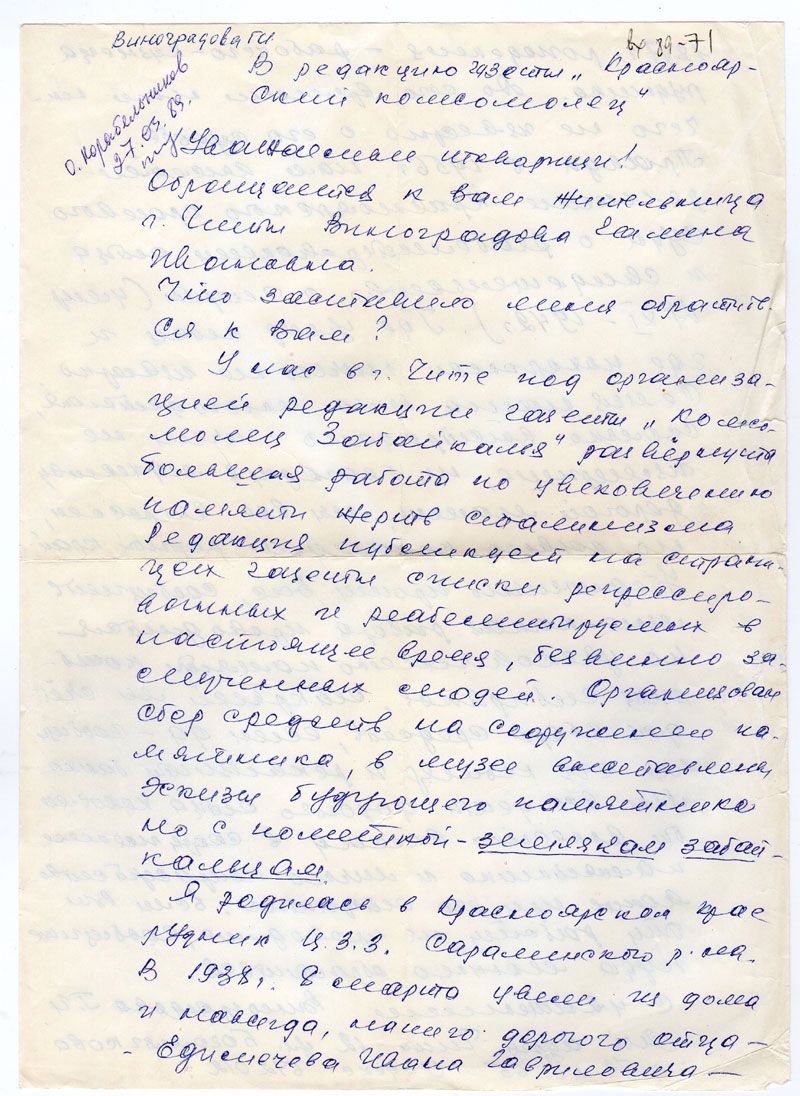 Виноградова Г.И.
89-71
О. Корабельников
27.03.89.
В редакцию газеты „Краснояр-
ский комсомолец"
Уважаемые товарищи!
Обращается к вам жительница
г. Читы Виноградова Галина
Ивановна.
Что заставило меня обратить-
ся к вам?
У нас в г. Чите под организа-
цией редакции газеты „Комсо-
молец Забайкалья" развёрнута
большая работа по увековечению
памяти жертв сталинизма
Редакция публикует на страни-
цах газеты списки репрессиро-
ванных и реабелитируемых в
настоящее время, безвинно за-
мученных людей. Организован
сбор средств на сооружение па-
мятника, в музее выставлены
эскизы будующего памятника
но с пометкой - землякам забай-
кальцам.
Я родилась в Красноярском крае
рудник Ц.З.З. Саралинского р-на.
В 1938г. 8 марта увели из дома
и навсегда, нашего дорогого отца -
- Едимечева Ивана Гавриловича -